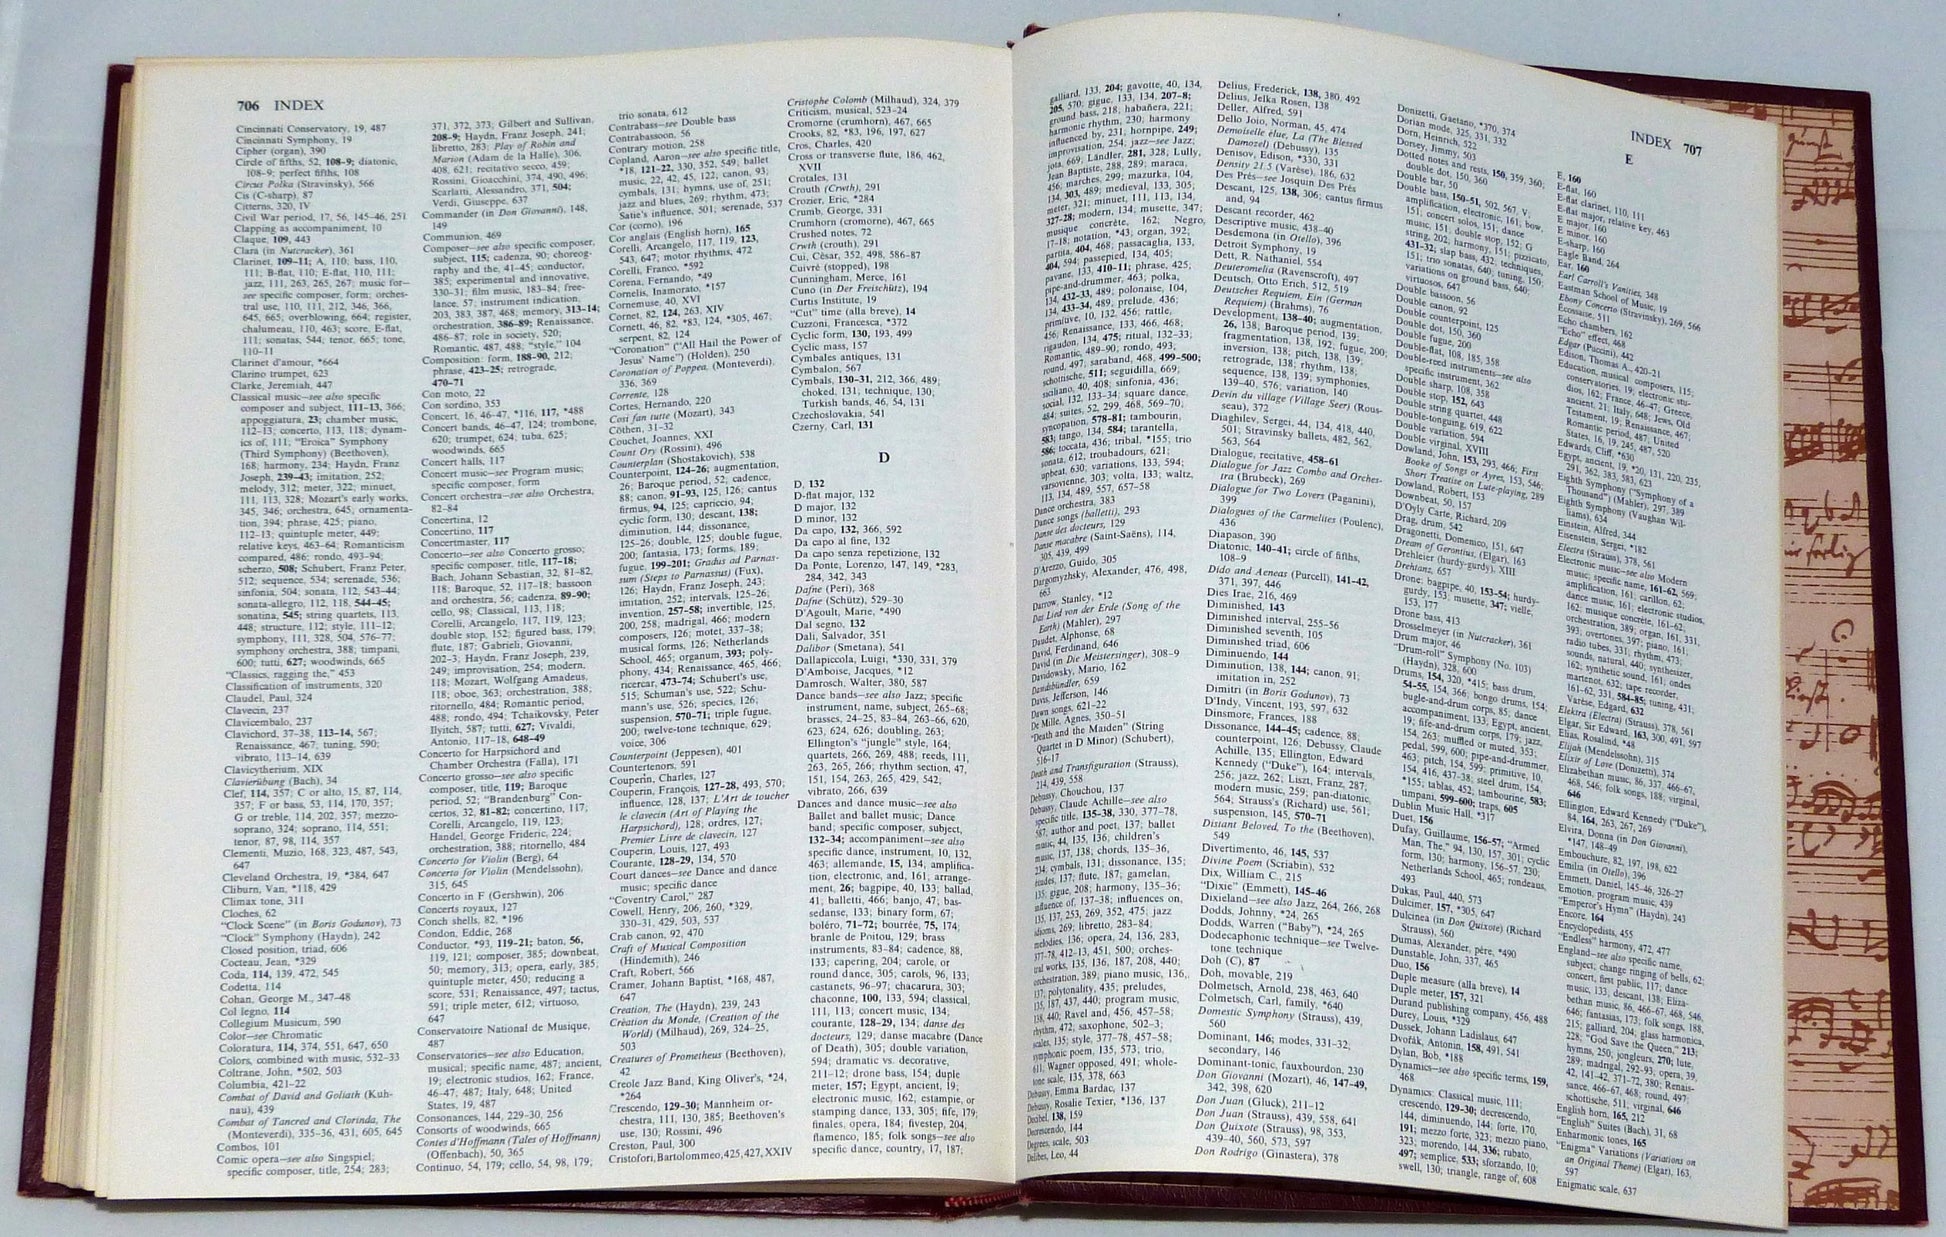 706 INDEX
Cincinnati Conservatory, 19, 487
Cincinnati Symphony, 19
Cipher (organ), 390
Circle of fifths, 52, 108–9; diatonic,
108–9; perfect fifths, 108
Circus Polka (Stravinsky), 566
Cis (C-sharp), 87
Citterns, 320, IV
Civil War period, 17, 56, 145–46, 251
Clapping as accompaniment, 10
Claque, 109, 443
Clara (in Nutcracker), 361
Clarinet, 109–11; A, 110; bass, 110,
111; B-flat, 110; E-flat, 110, 111;
jazz, 111, 263, 265, 267; music for—
see specific composer, form; orches-
tral use, 110, 111, 212, 346, 366,
645, 665; overblowing, 664; register,
chalumeau, 110, 463; score, E-flat,
111; sonatas, 544; tenor, 665; tone,
110–11
Clarinet d'amour, *664
Clarino trumpet, 623
Clarke, Jeremiah, 447
Classical music—see also specific
composer and subject, 111–13, 366;
appoggiatura, 23; chamber music,
112–13; concerto, 113, 118; dynam-
ics of, 111; "Eroica" Symphony
(Third Symphony) (Beethoven),
168; harmony, 234; Haydn, Franz
Joseph, 239–43; imitation, 252;
melody, 312; meter, 322; minuet,
111, 113, 328; Mozart's early works,
345, 346; orchestra, 645; ornamenta-
tion, 394; phrase, 425; piano,
112–13; quintuple meter, 449;
relative keys, 463–64; Romanticism
compared, 486; rondo, 493–94;
scherzo, 508; Schubert, Franz Peter,
512; sequence, 534; serenade, 536;
sinfonia, 504; sonata, 112, 543–44;
sonata-allegro, 112, 118, 544–45;
sonatina, 545; string quartets, 113,
448; structure, 112; style, 111–12;
symphony, 111, 328, 504, 576–77;
symphony orchestra, 388; timpani,
600; tutti, 627; woodwinds, 665
"Classics, ragging the," 453
Classification of instruments, 320
Claudel, Paul, 324
Clavecin, 237
Clavicembalo, 237
Clavichord, 37–38, 113–14, 567;
Renaissance, 467; tuning, 590;
vibrato, 113–14, 639
Clavicytherium, XIX
Clavierübung (Bach), 34
Clef, 114, 357; C or alto, 15, 87, 114,
357; F or bass, 53, 114, 170, 357;
G or treble, 114, 202, 357; mezzo-
soprano, 324; soprano, 114, 551;
tenor, 87, 98, 114, 357
Clementi, Muzio, 168, 323, 487, 543,
647
Cleveland Orchestra, 19, *384, 647
Cliburn, Van, *118, 429
Climax tone, 311
Cloches, 62
"Clock Scene" (in Boris Godunov), 73
"Clock" Symphony (Haydn), 242
Closed position, triad, 606
Cocteau, Jean, *329
Coda, 114, 139, 472, 545
Codetta, 114
Cohan, George M., 347–48
Col legno, 114
Collegium Musicum, 590
Color—see Chromatic
Coloratura, 114, 374, 551, 647, 650
Colors, combined with music, 532–33
Coltrane, John, *502, 503
Columbia, 421–22
Combat of David and Goliath (Kuh-
nau), 439
Combat of Tancred and Clorinda, The
(Monteverdi), 335–36, 431, 605, 645
Combos, 101
Comic opera—see also Singspiel;
specific composer, title, 254; 283;
371, 372, 373; Gilbert and Sullivan,
208–9; Haydn, Franz Joseph, 241;
libretto, 283; Play of Robin and
Marion (Adam de la Halle), 306,
408, 621; recitativo secco, 459;
Rossini, Gioacchini, 374, 490, 496;
Scarlatti, Alessandro, 371, 504;
Verdi, Giuseppe, 637
Commander (in Don Giovanni), 148,
149
Communion, 469
Composer—see also specific composer,
subject, 115; cadenza, 90; choreog-
raphy and the, 41–45; conductor,
385; experimental and innovative,
330–31; film music, 183–84; free-
lance, 57; instrument indication,
203, 383, 387, 468; memory, 313–14;
orchestration, 386–89; Renaissance,
486–87; role in society, 520;
Romantic, 487, 488; "style," 104
Composition: form, 188–90, 212;
phrase, 423–25; retrograde,
470–71
Con moto, 22
Con sordino, 353
Concert, 16, 46–47, *116, 117, *488
Concert bands, 46–47, 124; trombone,
620; trumpet, 624; tuba, 625;
woodwinds, 665
Concert halls, 117
Concert music—see Program music;
specific composer, form
Concert orchestra—see also Orchestra,
82–84
Concertina, 12
Concertino, 117
Concertmaster, 117
Concerto—see also Concerto grosso;
specific composer, title, 117–18;
Bach, Johann Sebastian, 32, 81–82,
118; Baroque, 52, 117–18; bassoon
and orchestra, 56; cadenza, 89–90;
cello, 98; Classical, 113, 118;
Corelli, Arcangelo, 117, 119, 123;
double stop, 152; figured bass, 179;
flute, 187; Gabrieli, Giovanni,
202–3; Haydn, Franz Joseph, 239,
249; improvisation, 254; modern,
118; Mozart, Wolfgang Amadeus,
118; oboe, 363; orchestration, 388;
ritornello, 484; Romantic period,
488; rondo, 494; Tchaikovsky, Peter
Ilyitch, 587; tutti, 627; Vivaldi,
Antonio, 117–18, 648–49
Concerto for Harpsichord and
Chamber Orchestra (Falla), 171
Concerto grosso—see also specific
composer, title, 119; Baroque
period, 52; "Brandenburg" Con-
certos, 32, 81–82; concertino, 117;
Corelli, Arcangelo, 119, 123;
Handel, George Frideric, 224;
orchestration, 388; ritornello, 484
Concerto for Violin (Berg), 64
Concerto for Violin (Mendelssohn),
315, 645
Concerto in F (Gershwin), 206
Concerts royaux, 127
Conch shells, 82, *196
Condon, Eddie, 268
Conductor, *93, 119–21; baton, 56,
119, 121; composer, 385; downbeat,
50; memory, 313; opera, early, 385;
quintuple meter, 450; reducing a
score, 531; Renaissance, 497; tactus,
591; triple meter, 612; virtuoso,
647
Conservatoire National de Musique,
487
Conservatories—see also Education,
musical; specific name, 487; ancient,
19; electronic studios, 162; France,
46–47, 487; Italy, 648; United
States, 19, 487
Consonances, 144, 229–30, 256
Consorts of woodwinds, 665
Contes d'Hoffmann (Tales of Hoffmann)
(Offenbach), 50, 365
Continuo, 54, 179; cello, 54, 98, 179;
trio sonata, 612
Contrabass—see Double bass
Contrabassoon, 56
Contrary motion, 258
Copland, Aaron—see also specific title,
*18, 121–22, 330, 352, 549; ballet
music, 22, 42, 45, 122; canon, 93;
cymbals, 131; hymns, use of, 251;
jazz and blues, 269; rhythm, 473;
Satie's influence, 501; serenade, 537
Cor (corno), 196
Cor anglais (English horn), 165
Corelli, Arcangelo, 117, 119, 123,
543, 647; motor rhythms, 472
Corelli, Franco, *592
Corena, Fernando, *49
Cornelis, Inamorato, *157
Cornemuse, 40, XVI
Cornet, 82, 124, 263, XIV
Cornett, 46, 82, *83, 124, *305, 467;
serpent, 82, 124
"Coronation" ("All Hail the Power of
Jesus' Name") (Holden), 250
Coronation of Poppea, (Monteverdi),
336, 369
Corrente, 128
Cortes, Hernando, 220
Così fan tutte (Mozart), 343
Cöthen, 31–32
Couchet, Joannes, XXI
Count Ory (Rossini), 496
Counterplan (Shostakovich), 538
Counterpoint, 124–26; augmentation,
26; Baroque period, 52; cadence,
88; canon, 91–93, 125, 126; cantus
firmus, 94, 125; capriccio, 94;
cyclic form, 130; descant, 138;
diminution, 144; dissonance,
125–26; double, 125; double fugue,
200; fantasia, 173; forms, 189;
fugue, 199–201; Gradus ad Parnas-
sum (Steps to Parnassus) (Fux),
126; Haydn, Franz Joseph, 243;
imitation, 252; intervals, 125–26;
invention, 257–58; invertible, 125,
200, 258; madrigal, 466; modern
composers, 126; motet, 337–38;
musical forms, 126; Netherlands
School, 465; organum, 393; poly-
phony, 434; Renaissance, 465, 466;
ricercar, 473–74; Schubert's use,
515; Schuman's use, 522; Schu-
mann's use, 526; species, 126;
suspension, 570–71; triple fugue,
200; twelve-tone technique, 629;
voice, 306
Counterpoint (Jeppesen), 401
Countertenors, 591
Couperin, Charles, 127
Couperin, François, 127–28, 493, 570;
influence, 128, 137; L'Art de toucher
le clavecin (Art of Playing the
Harpsichord), 128; ordres, 127;
Premier Livre de clavecin, 127
Couperin, Louis, 127, 493
Courante, 128–29, 134, 570
Court dances—see Dance and dance
music; specific dance
"Coventry Carol," 287
Cowell, Henry, 206, 260, *329,
330–31, 429, 503, 537
Crab canon, 92, 470
Craft of Musical Composition
(Hindemith), 246
Craft, Robert, 566
Cramer, Johann Baptist, *168, 487,
647
Creation, The (Haydn), 239, 243
Création du Monde, (Creation of the
World) (Milhaud), 269, 324–25,
503
Creatures of Prometheus (Beethoven),
42
Creole Jazz Band, King Oliver's, *24,
*264
Crescendo, 129–30; Mannheim or-
chestra, 111, 130, 385; Beethoven's
use, 130; Rossini, 496
Creston, Paul, 300
Cristofori, Bartolommeo, 425, 427, XXIV
Cristophe Colomb (Milhaud), 324, 379
Criticism, musical, 523–24
Cromorne (crumhorn), 467, 665
Crooks, 82, *83, 196, 197, 627
Cros, Charles, 420
Cross or transverse flute, 186, 462,
XVII
Crotales, 131
Crouth (Crwth), 291
Crozier, Eric, *284
Crumb, George, 331
Crumhorn (cromorne), 467, 665
Crushed notes, 72
Crwth (crouth), 291
Cui, César, 352, 498, 586–87
Cuivré (stopped), 198
Cunningham, Merce, 161
Cuno (in Der Freischütz), 194
Curtis Institute, 19
"Cut" time (alla breve), 14
Cuzzoni, Francesca, *372
Cyclic form, 130, 193, 499
Cyclic mass, 157
Cymbales antiques, 131
Cymbalon, 567
Cymbals, 130–31, 212, 366, 489;
choked, 131; technique, 130;
Turkish bands, 46, 54, 131
Czechoslovakia, 541
Czerny, Carl, 131
D
D, 132
D-flat major, 132
D major, 132
D minor, 132
Da capo, 132, 366, 592
Da capo al fine, 132
Da capo senza repetizione, 132
Da Ponte, Lorenzo, 147, 149, *283,
284, 342, 343
Dafne (Peri), 368
Dafne (Schütz), 529–30
D'Agoult, Marie, *490
Dal segno, 132
Dali, Salvador, 351
Dalibor (Smetana), 541
Dallapiccola, Luigi, *330, 331, 379
D'Amboise, Jacques, *12
Damrosch, Walter, 380, 587
Dance bands—see also Jazz; specific
instrument, name, subject, 265–68;
brasses, 24–25, 83–84, 263–66, 620,
623, 624, 626; doubling, 263;
Ellington's "jungle" style, 164;
quartets, 266, 269, 488; reeds, 111,
263, 265, 266; rhythm section, 47,
151, 154, 263, 265, 429, 542,
vibrato, 266, 639
Dances and dance music—see also
Ballet and ballet music; Dance
band; specific composer, subject,
132–34; accompaniment—see also
specific dance, instrument, 10, 132,
463; allemande, 15, 134, amplifica-
tion, electronic, and, 161; arrange-
ment, 26; bagpipe, 40, 133; ballad,
41; balletti, 466; banjo, 47; bas-
sedanse, 133; binary form, 67;
boléro, 71–72; bourrée, 75, 174;
branle de Poitou, 129; brass
instruments, 83–84; cadence, 88,
133; capering, 204; carole, or
round dance, 305; carols, 96, 133;
castanets, 96–97; chacarura, 303;
chaconne, 100, 133, 594; classical,
111, 113; concert music, 134;
courante, 128–29, 134; danse des
docteurs, 129; danse macabre (Dance
of Death), 305; double variation,
594; dramatic vs. decorative,
211–12; drone bass, 154; duple
meter, 157; Egypt, ancient, 19;
electronic music, 162; estampie, or
stamping dance, 133, 305; fife, 179;
finales, opera, 184; fivestep, 204,
flamenco, 185; folk songs—see also
specific dance, country, 17, 187;
galliard, 133, 204; gavotte, 40, 134,
205, 570; gigue, 133, 134, 207–8;
ground bass, 218; habañera, 221;
harmonic rhythm, 230; harmony
influenced by, 231; hornpipe, 249;
improvisation, 254; jazz—see Jazz;
jota, 669, Ländler, 281, 328; Lully,
Jean Baptiste, 288, 289; maraca,
456; marches, 299; mazurka, 104,
134, 303, 489; medieval, 133, 305;
meter, 321; minuet, 111, 113, 134,
327–28; modern, 134; musette, 347;
musique concrète, 162; Negro,
17–18; notation, *43; organ, 392;
partita, 404, 468; passacaglia, 133,
404, 594; passepied, 134, 405;
pavane, 133, 410–11; phrase, 425,
pipe-and-drummer, 463; polka,
134, 432–33, 489; polonaise, 104,
134, 433–34, 489; prelude, 436;
primitive, 10, 132, 456; rattle,
456; Renaissance, 133, 466, 468;
rigaudon, 134, 475; ritual, 132–33;
Romantic, 489–90; rondo, 493;
round, 497; saraband, 468, 499–500;
schottische, 511; seguidilla, 669;
siciliano, 40, 408; sinfonia, 436;
social, 132, 133–34; square dance,
484; suites, 52, 299, 468, 569–70;
syncopation, 578–81; tambourin,
583; tango, 134, 584; tarantella,
586; toccata, 436; tribal, *155; trio
sonata, 612; troubadours, 621;
upbeat, 630; variations, 133, 594;
varsovienne, 303; volta, 133; waltz,
113, 134, 489, 557, 657–58
Dance orchestra, 383
Dance songs (balletti), 293
Danse des docteurs, 129
Danse macabre (Saint-Saëns), 114,
305, 439, 499
D'Arezzo, Guido, 305
Dargomyzhsky, Alexander, 476, 498,
663
Darrow, Stanley, *12
Das Lied von der Erde (Song of the
Earth) (Mahler), 297
Daudet, Alphonse, 68
David, Ferdinand, 646
David (in Die Meistersinger), 308–9
Davidowsky, Mario, 162
Davidsbündler, 659
Davis, Jefferson, 146
Dawn songs, 621–22
De Mille, Agnes, 350–51
"Death and the Maiden" (String
Quartet in D Minor) (Schubert),
516–17
Death and Transfiguration (Strauss),
214, 439, 558
Debussy, Chouchou, 137
Debussy, Claude Achille—see also
specific title, 135–38, 330, 377–78,
587; author and poet, 137; ballet
music, 44, 135, 136; children's
music, 137, 138; chords, 135–36,
234; cymbals, 131; dissonance, 135;
études, 137; flute, 187; gamelan,
135; gigue, 208; harmony, 135–36;
influence of, 137–38; influences on,
135, 137, 253, 269, 352, 475; jazz
idioms, 269; libretto, 283–84,
melodies, 136; opera, 24, 136, 283,
377–78, 412–13, 451, 500; orches-
tral works, 135, 136, 187, 208, 440;
orchestration, 389; piano music, 136,
137; polytonality, 435; preludes,
135, 187, 437, 440; program music,
138, 440; Ravel and, 456, 457–58;
rhythm, 472, saxophone, 502–3;
scales, 135; style, 377–78, 457–58;
symphonic poem, 135, 573; trio,
611, Wagner opposed, 491; whole-
tone scale, 135, 378, 663
Debussy, Emma Bardac, 137
Debussy, Rosalie Texier, *136, 137
Decibel, 138, 159
Decrescendo, 144
Degrees, scale, 503
Delibes, Leo, 44
Delius, Frederick, 138, 380, 492
Delius, Jelka Rosen, 138
Deller, Alfred, 591
Dello Joio, Norman, 45, 474
Demoiselle élue, La (The Blessed
Damozel) (Debussy), 135
Denisov, Edison, *330, 331
Density 21.5 (Varèse), 186, 632
Des Prés—see Josquin Des Prés
Descant, 125, 138, 306; cantus firmus
and, 94
Descant recorder, 462
Descriptive music, 438–40
Desdemona (in Otello), 396
Detroit Symphony, 19
Dett, R. Nathaniel, 554
Deuteromelia (Ravenscroft), 497
Deutsch, Otto Erich, 512, 519
Deutsches Requiem, Ein (German
Requiem) (Brahms), 76
Development, 138–40; augmentation,
26, 138; Baroque period, 139;
fragmentation, 138, 192; fugue, 200;
inversion, 138; pitch, 138, 139;
retrograde, 138; rhythm, 138;
sequence, 138, 139; symphonies,
139–40, 576; variation, 140
Devin du village (Village Seer) (Rous-
seau), 372
Diaghilev, Sergei, 44, 134, 418, 440,
501; Stravinsky ballets, 482, 562,
563, 564
Dialogue, recitative, 458–61
Dialogue for Jazz Combo and Orches-
tra (Brubeck), 269
Dialogue for Two Lovers (Paganini),
399
Dialogues of the Carmelites (Poulenc),
436
Diapason, 390
Diatonic, 140–41; circle of fifths,
108–9
Dido and Aeneas (Purcell), 141–42,
371, 397, 446
Dies Irae, 216, 469
Diminished, 143
Diminished interval, 255–56
Diminished seventh, 105
Diminished triad, 606
Diminuendo, 144
Diminution, 138, 144; canon, 91;
imitation in, 252
Dimitri (in Boris Godunov), 73
D'Indy, Vincent, 193, 597, 632
Dinsmore, Frances, 188
Dissonance, 144–45; cadence, 88;
counterpoint, 126; Debussy, Claude
Achille, 135; Ellington, Edward
Kennedy ("Duke"), 164; intervals,
256; jazz, 262; Liszt, Franz, 287;
modern music, 259; pan-diatonic,
564; Strauss's (Richard) use, 561;
suspension, 145, 570–71
Distant Beloved, To the (Beethoven),
549
Divertimento, 46, 145, 537
Divine Poem (Scriabin), 532
Dix, William C., 215
"Dixie" (Emmett), 145–46
Dixieland—see also Jazz, 264, 266, 268
Dodds, Johnny, *24, 265
Dodds, Warren ("Baby"), *24, 265
Dodecaphonic technique—see Twelve-
tone technique
Doh (C), 87
Doh, movable, 219
Dolmetsch, Arnold, 238, 463, 640
Dolmetsch, Carl, family, *640
Domestic Symphony (Strauss), 439,
560
Dominant, 146; modes, 331–32,
secondary, 146
Dominant-tonic, fauxbourdon, 230
Don Giovanni (Mozart), 46, 147–49,
342, 398, 620
Don Juan (Gluck), 211–12
Don Juan (Strauss), 439, 558, 641
Don Quixote (Strauss), 98, 353,
439–40, 560, 573, 597
Don Rodrigo (Ginastera), 378
Donizetti, Gaetano, *370, 374
Dorian mode, 325, 331, 332
Dorn, Heinrich, 522
Dorsey, Jimmy, 503
Dotted notes and rests, 150, 359, 360;
Double dot, 150, 360
Double bar, 50
Double bass, 150–51, 502, 567, V;
amplification, electronic, 161; bow,
151; concert solos, 151; dance
music, 151; double stop, 152; G
string, 202; harmony, 151; pizzicato,
431–32; slap bass, 432, techniques,
151; trio sonatas, 640; tuning, 150;
variations on ground bass, 640;
virtuosos, 647
Double bassoon, 56
Double canon, 92
Double counterpoint, 125
Double dot, 150, 360
Double fugue, 200
Double-flat, 108, 185, 358
Double-reed instruments—see also
specific instrument, 362
Double sharp, 108, 358
Double stop, 152, 643
Double string quartet, 448
Double tonguing, 619, 622
Double variation, 594
Double virginal, XVIII
Dowland, John, 153, 293, 466; First
Booke of Songs or Ayres, 153, 546,
Short Treatise on Lute-playing, 289
Dowland, Robert, 153
Downbeat, 50, 157
D'Oyly Carte, Richard, 209
Drag, drum, 542
Dragonetti, Domenico, 151, 647
Dream of Gerontius, (Elgar), 163
Drehleier (hurdy-gurdy), XIII
Drehtanz, 657
Drone: bagpipe, 40, 153–54; hurdy-
gurdy, 153; musette, 347; vielle,
153, 177
Drone bass, 413
Drosselmeyer (in Nutcracker), 361
Drum major, 46
"Drum-roll" Symphony (No. 103)
(Haydn), 328, 600
Drums, 154, 320, *415; bass drum,
54–55, 154, 366; bongo drums, 154;
bugle-and-drum corps, 85; dance
accompaniment, 133; Egypt, ancient,
19; fife-and-drum corps, 179; jazz,
154, 263; muffled or muted, 353;
pedal, 599, 600; pipe-and-drummer,
463; pitch, 154, 599; primitive, 10,
154, 416, 437–38; steel drum, 154,
*155; tablas, 452; tambourine, 583;
timpani, 599–600; traps, 605
Dublin Music Hall, *317
Duet, 156
Dufay, Guillaume, 156–57; "Armed
Man, The," 94, 130, 157, 301; cyclic
form, 130; harmony, 156–57, 230;
Netherlands School, 465; rondeaus,
493
Dukas, Paul, 440, 573
Dulcimer, 157, *305, 647
Dulcinea (in Don Quixote) (Richard
Strauss), 560
Dumas, Alexander, père, *490
Dunstable, John, 337, 465
Duo, 156
Duple measure (alla breve), 14
Duple meter, 157, 321
Durand publishing company, 456, 488
Durey, Louis, *329
Dussek, Johann Ladislaus, 647
Dvořák, Antonin, 158, 491, 541
Dylan, Bob, *188
Dynamics—see also specific terms, 159,
468
Dynamics: Classical music, 111;
crescendo, 129–30; decrescendo,
144, diminuendo, 144; forte, 170,
191; mezzo forte, 323; mezzo piano,
323; morendo, 144, 336; rubato,
497; semplice, 533; sforzando, 10;
swell, 130; triangle, range of, 608
INDEX 707
E
E, 160
E-flat, 160
E-flat clarinet, 110, 111
E-flat major, relative key, 463
E major, 160
E minor, 160
E-sharp, 160
Eagle Band, 264
Ear, 160
Earl Carroll's Vanities, 348
Eastman School of Music, 19
Ebony Concerto (Stravinsky), 269, 566
Ecossaise, 511
Echo chambers, 162
"Echo" effect, 468
Edgar (Puccini), 442
Edison, Thomas A., 420–21
Education, musical composers, 115;
conservatories, 19; electronic stu-
dios, 162; France, 46–47; Greece,
ancient, 21; Italy, 648; Jews, Old
Testament, 19; Renaissance, 467;
Romantic period, 487; United
States, 16, 19, 245, 487, 520
Edwards, Cliff, *630
Egypt, ancient, 19, *20, 131, 220, 235,
291, 362, 383, 583, 623
Eighth Symphony ("Symphony of a
Thousand") (Mahler), 297, 389
Eighth Symphony (Vaughan Wil-
liams), 634
Einstein, Alfred, 344
Eisenstein, Sergei, *182
Electra (Strauss), 378, 561
Electronic music—see also Modern
music; specific name, 161–62, 569;
amplification, 161; carillon, 62;
dance music, 161; electronic studios,
162; musique concrète, 161–62,
orchestration, 389; organ, 161, 331,
393; overtones, 397; piano, 161;
radio tubes, 331; rhythm, 473;
sounds, natural, 440; synthesizer,
162; synthetic sound, 161; ondes
martenot, 632; tape recorder,
161–62, 331, 584–85; tuning, 431,
Varèse, Edgard, 632
Elektra (Electra) (Strauss), 378, 561
Elgar, Sir Edward, 163, 300, 491, 597
Elias, Rosalind, *48
Elijah (Mendelssohn), 315
Elixir of Love (Donizetti), 374
Elizabethan music, 86, 337, 466–67,
468, 546; folk songs, 188, virginal,
646
Ellington, Edward Kennedy ("Duke"),
84, 164, 263, 267, 269
Elvira, Donna (in Don Giovanni),
*147, 148–49
Embouchure, 82, 197, 198, 622
Emilia (in Otello), 396
Emmett, Daniel, 145–46, 326–27
Emotion, program music, 439
"Emperor's Hymn" (Haydn), 243
Encore, 164
Encyclopedists, 455
"Endless" harmony, 472, 477
England—see also specific name,
subject; change ringing of bells, 62;
concert, first public, 117; dance
music, 133; descant, 138; Eliza-
bethan music, 86, 466–67, 468, 546,
646; fantasias, 173; folk songs, 188,
215; galliard, 204; glass harmonica,
228; "God Save the Queen," 213;
hymns, 250, jongleurs, 270; lute,
289; madrigal, 292–93; opera, 39,
42, 141–42, 371–72, 380; Renais-
sance, 466–67, 468; round, 497;
schottische, 511; virginal, 646
English horn, 165, 212
"English" Suites (Bach), 31, 68
Enharmonic tones, 165
"Enigma" Variations (Variations on
an Original Theme) (Elgar), 163,
597
Enigmatic scale, 637